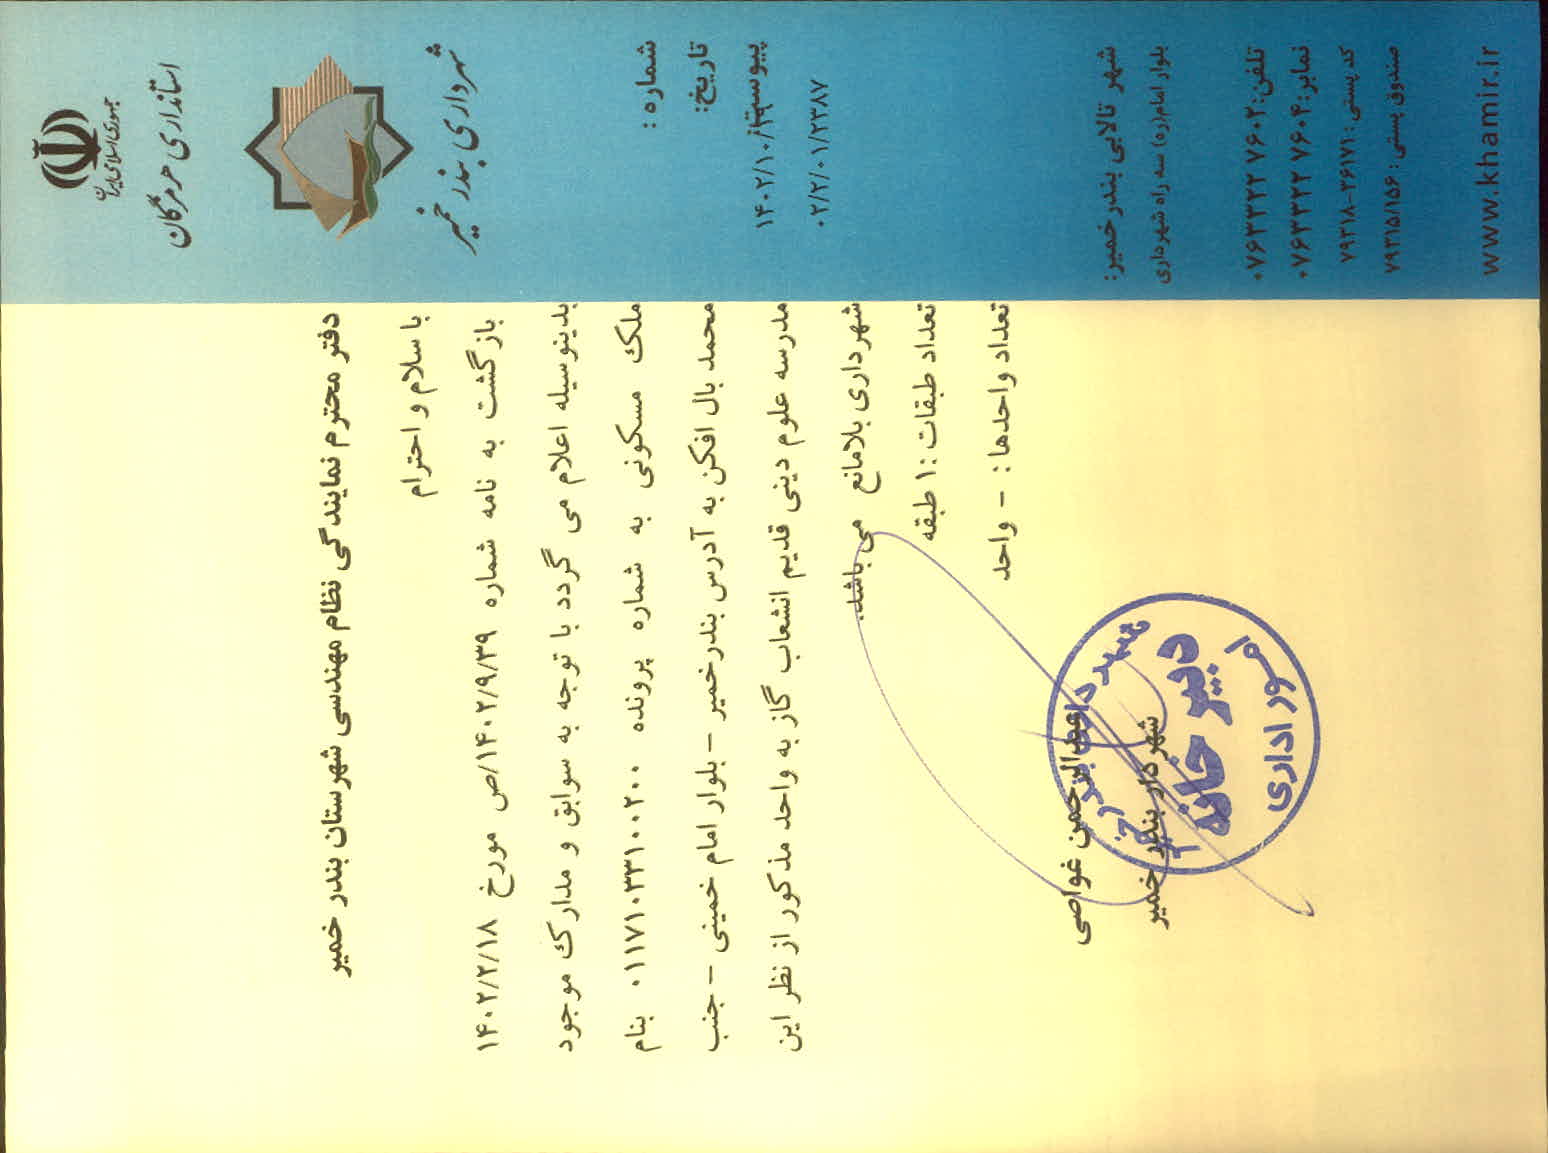 جمهوری اسلامی ایران
استانداری هرمزگان
شهرداری بندر خمیر
شماره :
تاریخ:
پیوست:
۱۴۰۲/۱۰/
۰۲/۲/۰۱/۲۳۸۷
دفتر محترم نمایندگی نظام مهندسی شهرستان بندر خمیر
با سلام و احترام
بازگشت به نامه شماره ۱۴۰۲/۹/۳۹/ص مورخ ۱۴۰۲/۲/۱۸
بدینوسیله اعلام می گردد با توجه به سوابق و مدارک موجود
ملک مسکونی به شماره پرونده ۰۱۱۷۱۰۳۳۱۰۰۲۰۰ بنام
محمد بال افکن به آدرس بندرخمیر – بلوار امام خمینی – جنب
مدرسه علوم دینی قدیم انشعاب گاز به واحد مذکور از نظر این
شهرداری بلامانع می باشد.
تعداد طبقات :۱ طبقه
تعداد واحدها : - واحد
عبدالرحمن غواصی
شهردار بندر خمیر
شهرداری بندر خمیر
دبیر خانه
امور اداری
شهر تالابی بندر خمیر:
بلوار امام(ره) سه راه شهرداری
تلفن:۰۷۶۳۳۲۲۷۶۰۲
نمابر:۰۷۶۳۳۲۲۷۶۰۴
کد پستی : ۳۶۱۷۱-۷۹۳۱۸
صندوق پستی : ۷۹۳۱۵/۱۵۶
www.khamir.ir